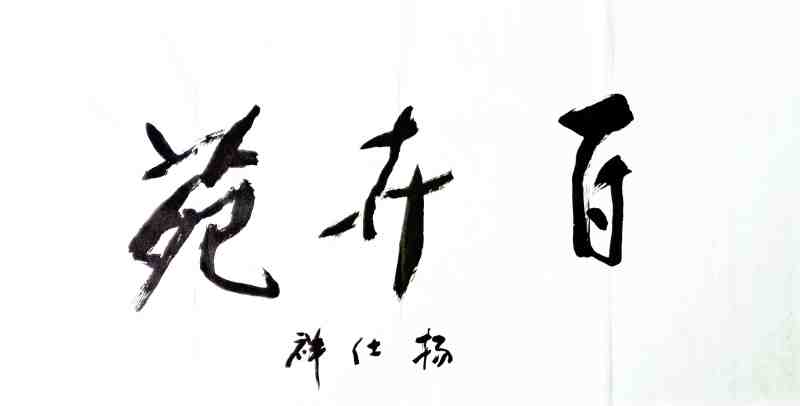 百卉苑
杨仕祥